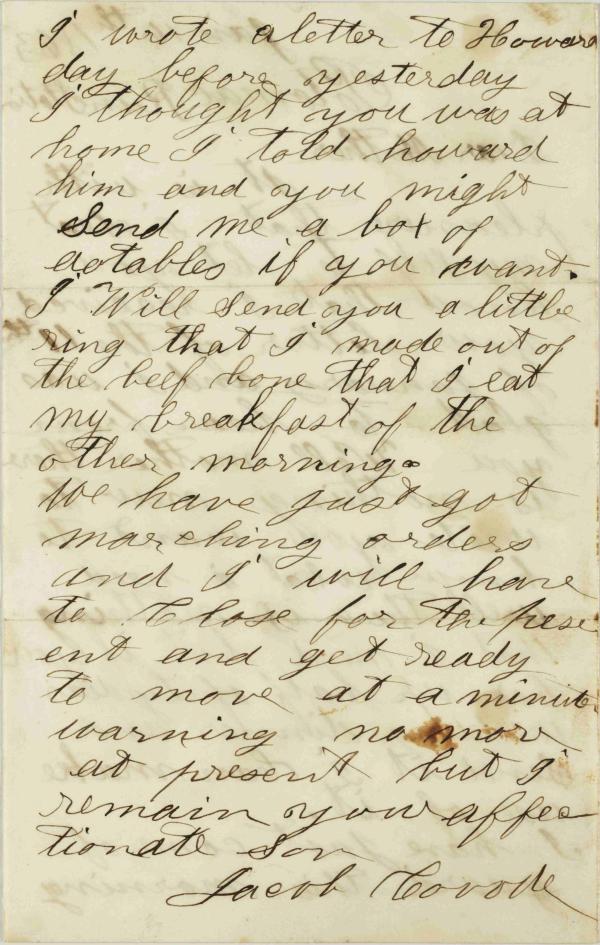 I wrote aletter to Howard
day before yesterday
I thought you was at
home I told howard
him and you might
Send me a box of
if you want.
I Will Send you a little
ring that I made out of
the beef bone that I eat
my breakfast of the
other morning.
We have just got
marching orders
and I will have
to Close for the pres
ent and get ready
to move at a minute
warning no more
at present but I
remain your affec
tionate son
Jacob Covode